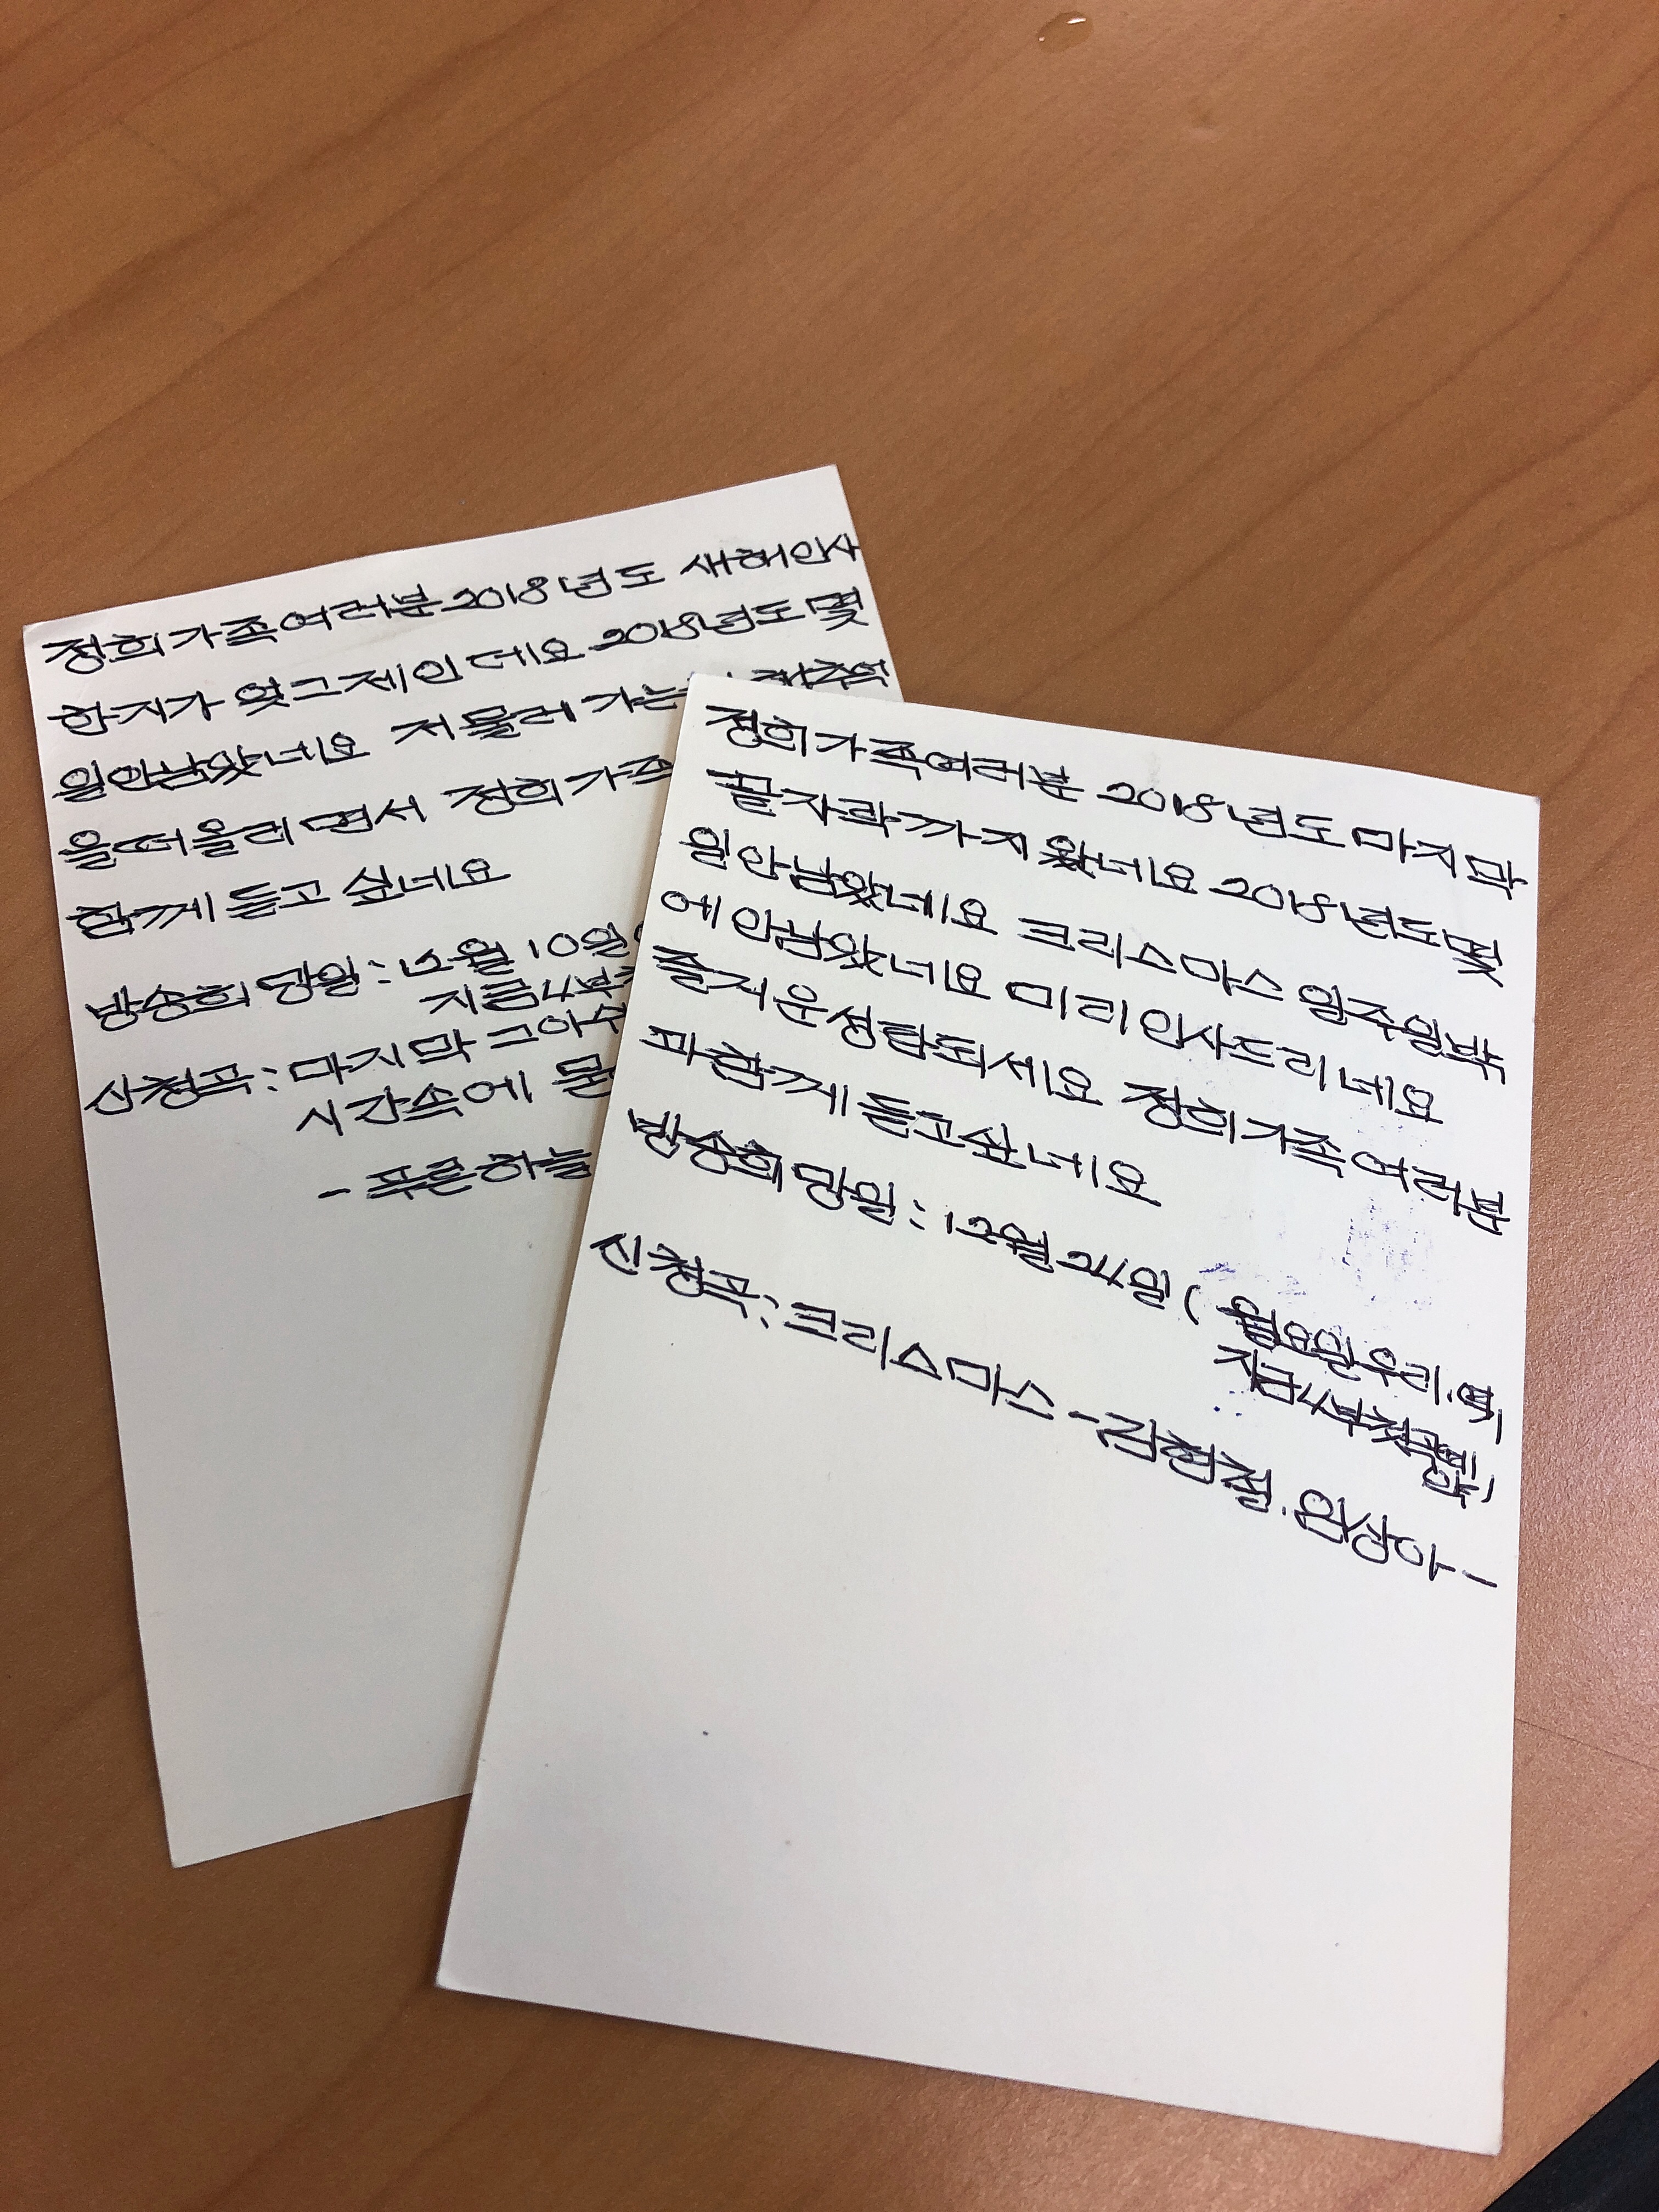 정희가족여러분 2018년도 새해인사
한지가 엊그제인데요 2018년도몇
일안남았네요 저물러가는
을떠올리면서 정희가족
함께듣고싶네요
방송희망일: 12월 10일
지금4부
신청곡: 마지막 그아쉬
시간속에
- 푸른하늘
정희가족여러분 2018년도마지막
끝자락까지왔네요 2018년도몇
일안남았네요 크리스마스 일주일밖
에안남았네요 미리인사드리네요
즐거운성탄되세요 정희가족여러분
과함께듣고싶네요
방송희망일: 12월24일( 월요일우리.
지금4부첫곡
신청곡: 크리스마스 -김현철.임상아-